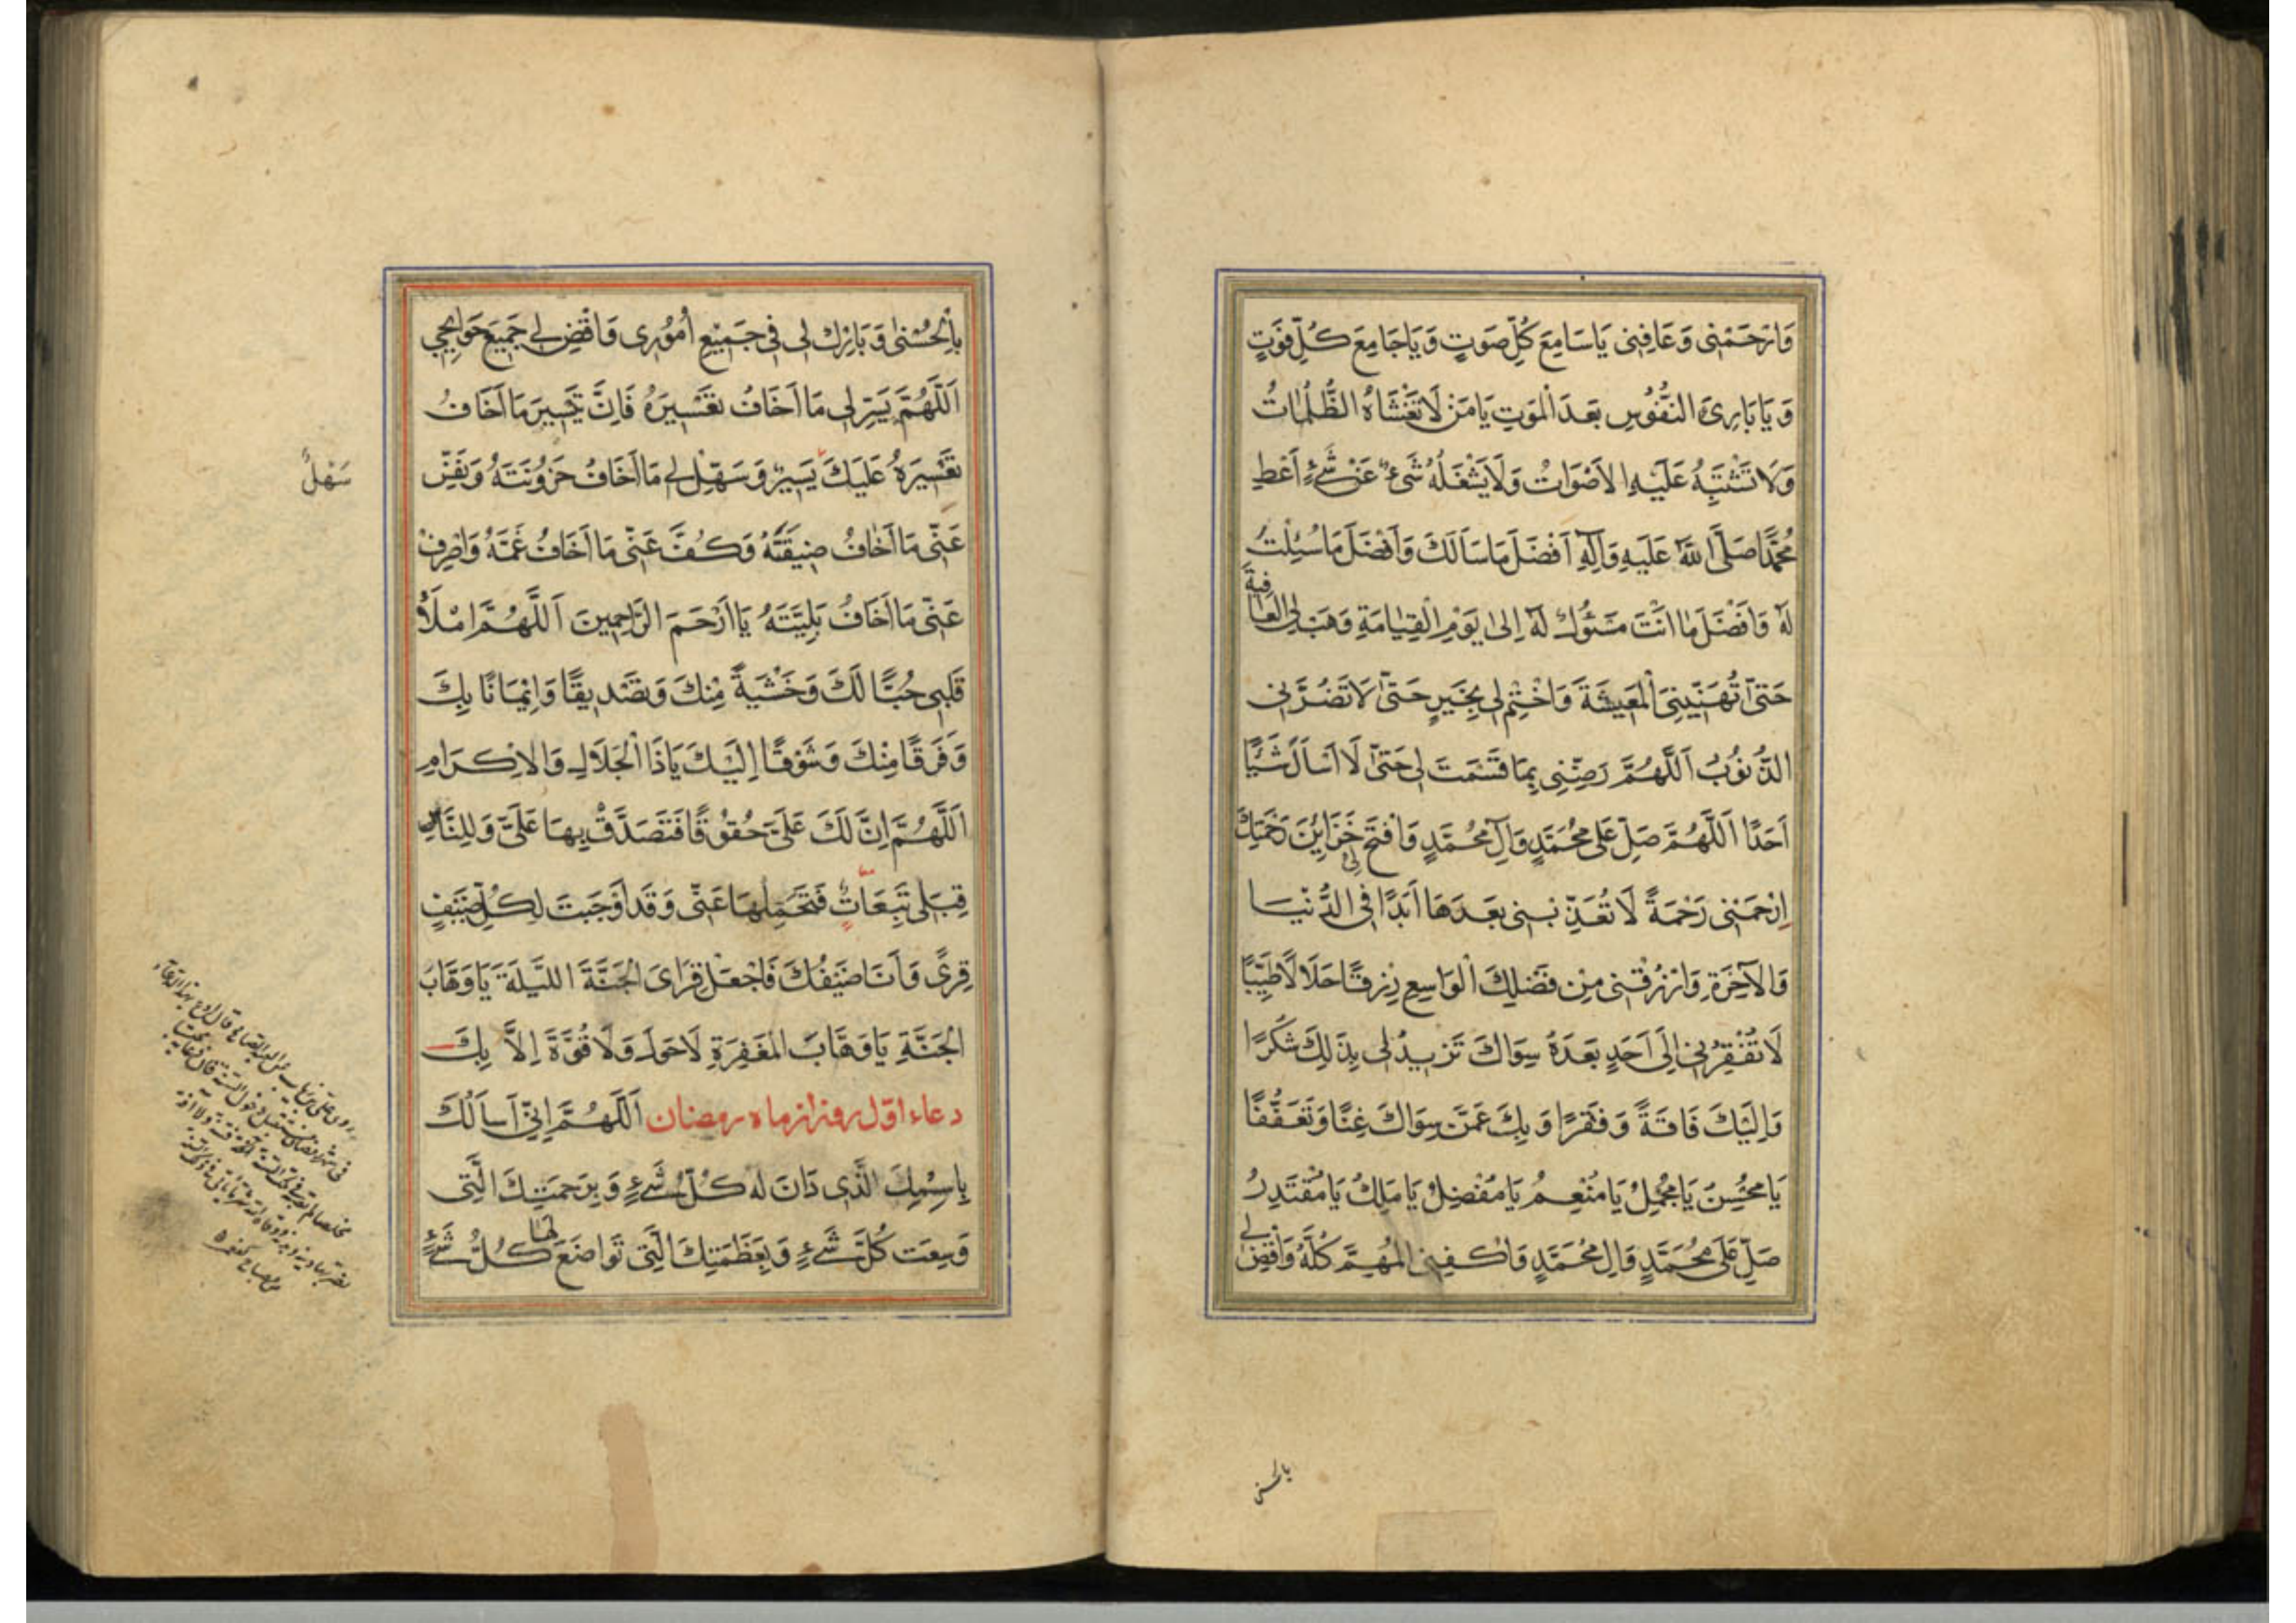 وَارْحَمْنِى وَعَافِنِى يَاسَامِعَ كُلِّ صَوتٍ وَيَاجَامِعَ كُلِّ فَوَتٍ
وَيَا بَارِئَ النُّفُوسِ بَعدَ الْمَوتِ يَامَن لَا تَغْشَاهُ الظُّلُمَاتُ
وَلَا تَشْتَبِهُ عَلَيْهِ الاَصْوَاتُ وَلَا يَشْغَلُهُ شَىءٌ عَنْ شَىْءٍ اَعْطِ
مُحَمَّدًا صَلَّى اللهُ عَلَيهِ وَآلِهِ اَفْضَلَ مَاسَاَلَكَ وَاَفْضَلَ مَاسُئِلْتَ
لَهُ وَاَفْضَلَ مَا اَنْتَ مَسَئُولٌ لَهُ اِلىٰ يَوْمِ الْقِيٰامَةِ وَهَبْ لِىَ العَافِيَةَ
حَتّىٰ تُهَنِّيَنِىَ الْمَعِيشَةَ وَاخْتِمْ لِى بِخَيرٍ حَتّىٰ لَا تَضُرَّنِى
الذُّنُوبُ اَللّٰهُمَّ رَضِّنِى بِمَا قَسَمْتَ لِى حَتّىٰ لَا اَسْاَلَ شَيْئًا
اَحَدًا اَللّٰهُمَّ صَلِّ عَلىٰ مُحَمَّدٍ وَآلِ مُحَمَّدٍ وَافْتَحْ لِى خَزَايِنَ رَحْمَتِكَ
اِرْحَمْنِى رَحْمَةً لَا تُعَذِّبْنِى بَعدَهَا اَبَدًا فِى الدُّنْيَا
وَالآخِرَةِ وَارْزُقْنِى مِنْ فَضْلِكَ الْوَاسِعِ رِزْقًا حَلَالًا طَيِّبًا
لَا تُفْقِرْنِى اِلَى اَحَدٍ بَعدَهُ سِوَاكَ تَزِيدُ لِى بِذٰلِكَ شُكْرًا
وَاِلَيْكَ فَاقَةً وَفَقْرًا وَبِكَ عَمَّنْ سِوَاكَ غِنًا وَتَعَفُّفًا
يَا مُحْسِنُ يَا مُجْمِلُ يَا مُنْعِمُ يَا مُفْضِلُ يَا مَلِكُ يَا مُقْتَدِرُ
صَلِّ عَلَى مُحَمَّدٍ وَالِ مُحَمَّدٍ وَاكْفِنِى الْمُهِمَّ كُلَّهُ وَاقْضِ لِى
بالحسنى
بِالْحُسْنٰى وَبَارِكْ لِى فِى جَمِيْعِ اُمُوْرِى وَاقْضِ لِى جَمِيعَ حَوَايِجِى
اَللّٰهُمَّ يَسِّرْ لِى مَا اَخَافُ تَعْسِيرَهُ فَاِنَّ تَيْسِيرَ مَا اَخَافُ
تَعْسِيرَهُ عَلَيْكَ يَسِيرٌ وَسَهِّلْ لِى مَا اَخَافُ حُزُونَتَهُ وَنَفِّسْ
سَهْلٌ
عَنِّى مَا اَخَافُ ضِيقَتَهُ وَكُفَّ عَنِّى مَا اَخَافُ غَمَّهُ وَاصْرِفْ
عَنِّى مَا اَخَافُ بَلِيَّتَهُ يَا اَرْحَمَ الرَّاحِمِينَ اَللّٰهُمَّ امْلَأْ
قَلْبِى حُبًّا لَكَ وَخَشْيَةً مِنْكَ وَتَصْدِيقًا وَاِيْمَانًا بِكَ
وَفَرَقًا مِنْكَ وَشَوْقًا اِلَيْكَ يَاذَا الْجَلَالِ وَالاِكْرَامِ
اَللّٰهُمَّ اِنَّ لَكَ عَلَىَّ حُقُوقًا فَتَصَدَّقْ بِهَا عَلَىَّ وَلِلنَّاسِ
قِبَلِى تَبِعَاتٌ فَتَحَمَّلْهَا عَنِّى وَقَدْ اَوْجَبْتَ لِكُلِّ ضَيْفٍ
قِرىً وَاَنَا ضَيْفُكَ فَاجْعَلْ قِرَاىَ الْجَنَّةَ اللَّيْلَةَ يَا وَهَّابَ
الْجَنَّةِ يَا وَهَّابَ الْمَغْفِرَةِ لَا حَولَ وَلَا قُوَّةَ اِلَّا بِكَ
دعاء اوّل روز از ماه رمضان اَللّٰهُمَّ اِنِّى اَسْاَلُكَ
بِاسْمِكَ الَّذِى دَانَ لَهُ كُلُّ شَىْءٍ وَبِرَحْمَتِكَ الَّتِى
وَسِعَتْ كُلَّ شَىْءٍ وَبِعَظَمَتِكَ الَّتِى تَوَاضَعَ لَهَا كُلُّ شَىْءٍ